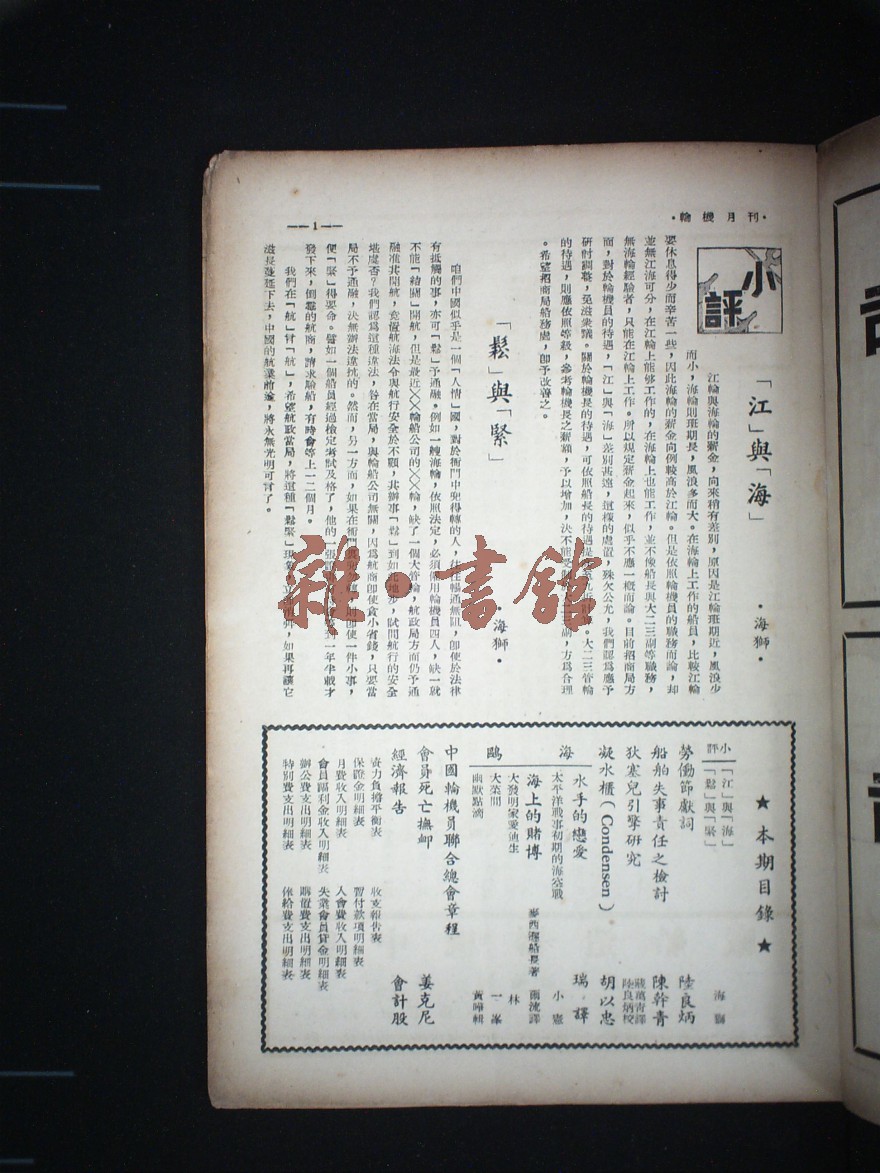 ·輪機月刊·
小評
「江」與「海」
·海獅·
江輪與海輪的薪金，向來稍有差別，原因是江輪班期近，風浪少
而小，海輪則班期長，風浪多而大。在海輪上工作的船員，比較江輪
要休息得少而辛苦一些，因此海輪的薪金向例較高於江輪。但是依照輪機員的職務而論，却
並無江海可分，在江輪上能够工作的，在海輪上也能工作，並不像船長與大二三副等職務，
無海輪經驗者，只能在江輪上工作。所以規定薪金起來，似乎不應一概而論。目前招商局方
面，對於輪機員的待遇，「江」與「海」差別甚遠，這樣的處置，殊欠公允，我們認爲應予
研討調整，免滋衆議。關於輪機長的待遇，可依照船長的待遇 大二三管輪
的待遇，則應依照等級，參考輪機長之薪額，予以增加，決不能 副，方爲合理
。希望招商局船務處，卽予改善之。
「鬆」與「緊」
·海獅·
咱們中國似乎是一個「人情」國，對於衙門中兜得轉的人，往往暢通無阻，卽使於法律
有抵觸的事，亦可「鬆」予通融。例如一艘海輪，依照法定，必須僱用輪機員四人，缺一就
不能「結關」開航，但是最近××輪船公司的××輪，缺了一個大管輪，航政局方面仍予通
融准其開航，竟置航海法令與航行安全於不顧，其辦事「鬆」到如此地步，試問航行的安全
堪虞否？我們認爲這種違法，咎在當局，與輪船公司無關，因爲航商卽使貪小省錢，只要當
局不予通融，決無辦法違抗的。然而，另一方面，如果在衙門 卽使一件小事，
便「緊」得要命。譬如一個船員經過檢定考試及格了，他的一張證 到一年半載才
發下來，倒霉的航商，請求驗船，有時會等上一二個月。
我們在「航」言「航」，希望航政當局，將這種「鬆緊」現象， ，如果再讓它
滋長蔓延下去，中國的航業前途，將永無光明可言了。
—1—
★本期目錄★
小評 「江」與「海」 「鬆」與「緊」 海獅
勞働節獻詞 陸良炳
船舶失事責任之檢討 陳幹青
狄塞兒引擎研究 戚萬青譯 陸良炳校
凝水櫃（Condensen） 胡以忠
海鷗
水手的戀愛 瑞譯
太平洋戰事初期的海空戰 小憲
海上的賭博 麥西邏船長著 雨流譯
大發明家愛迪生 林
大菜間 一峯
幽默點滴 黃曄輯
中國輪機員聯合總會章程
會員死亡撫卹 姜克尼
經濟報告 會計股
資力負擔平衡表 收支報告表
保證金明細表 暫付款項明細表
月費收入明細表 入會費收入明細表
會員福利金收入明細表 失業會員貸金明細表
辦公費支出明細表 購置費支出明細表
特別費支出明細表 俸給費支出明細表
雜·書館